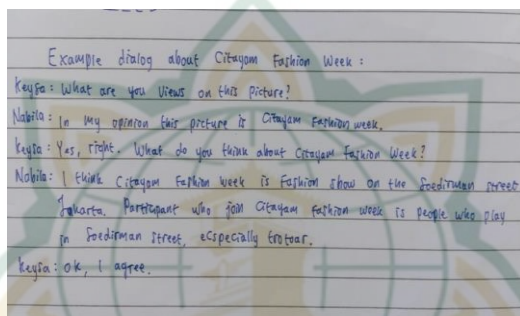 Example dialog about Citayam Fashion Week :
Keysa : What are you views on this picture?
Nabila : In my opinion this picture is Citayam Fashion week.
Keysa : Yes, right. What do you think about Citayam Fashion Week?
Nabila : I think Citayam Fashion week is fashion show on the Soedirman street
Jakarta. Participant who join Citayam fashion week is people who play
in Soedirman street, ecspecially trotoar.
Keysa : Ok, I agree.